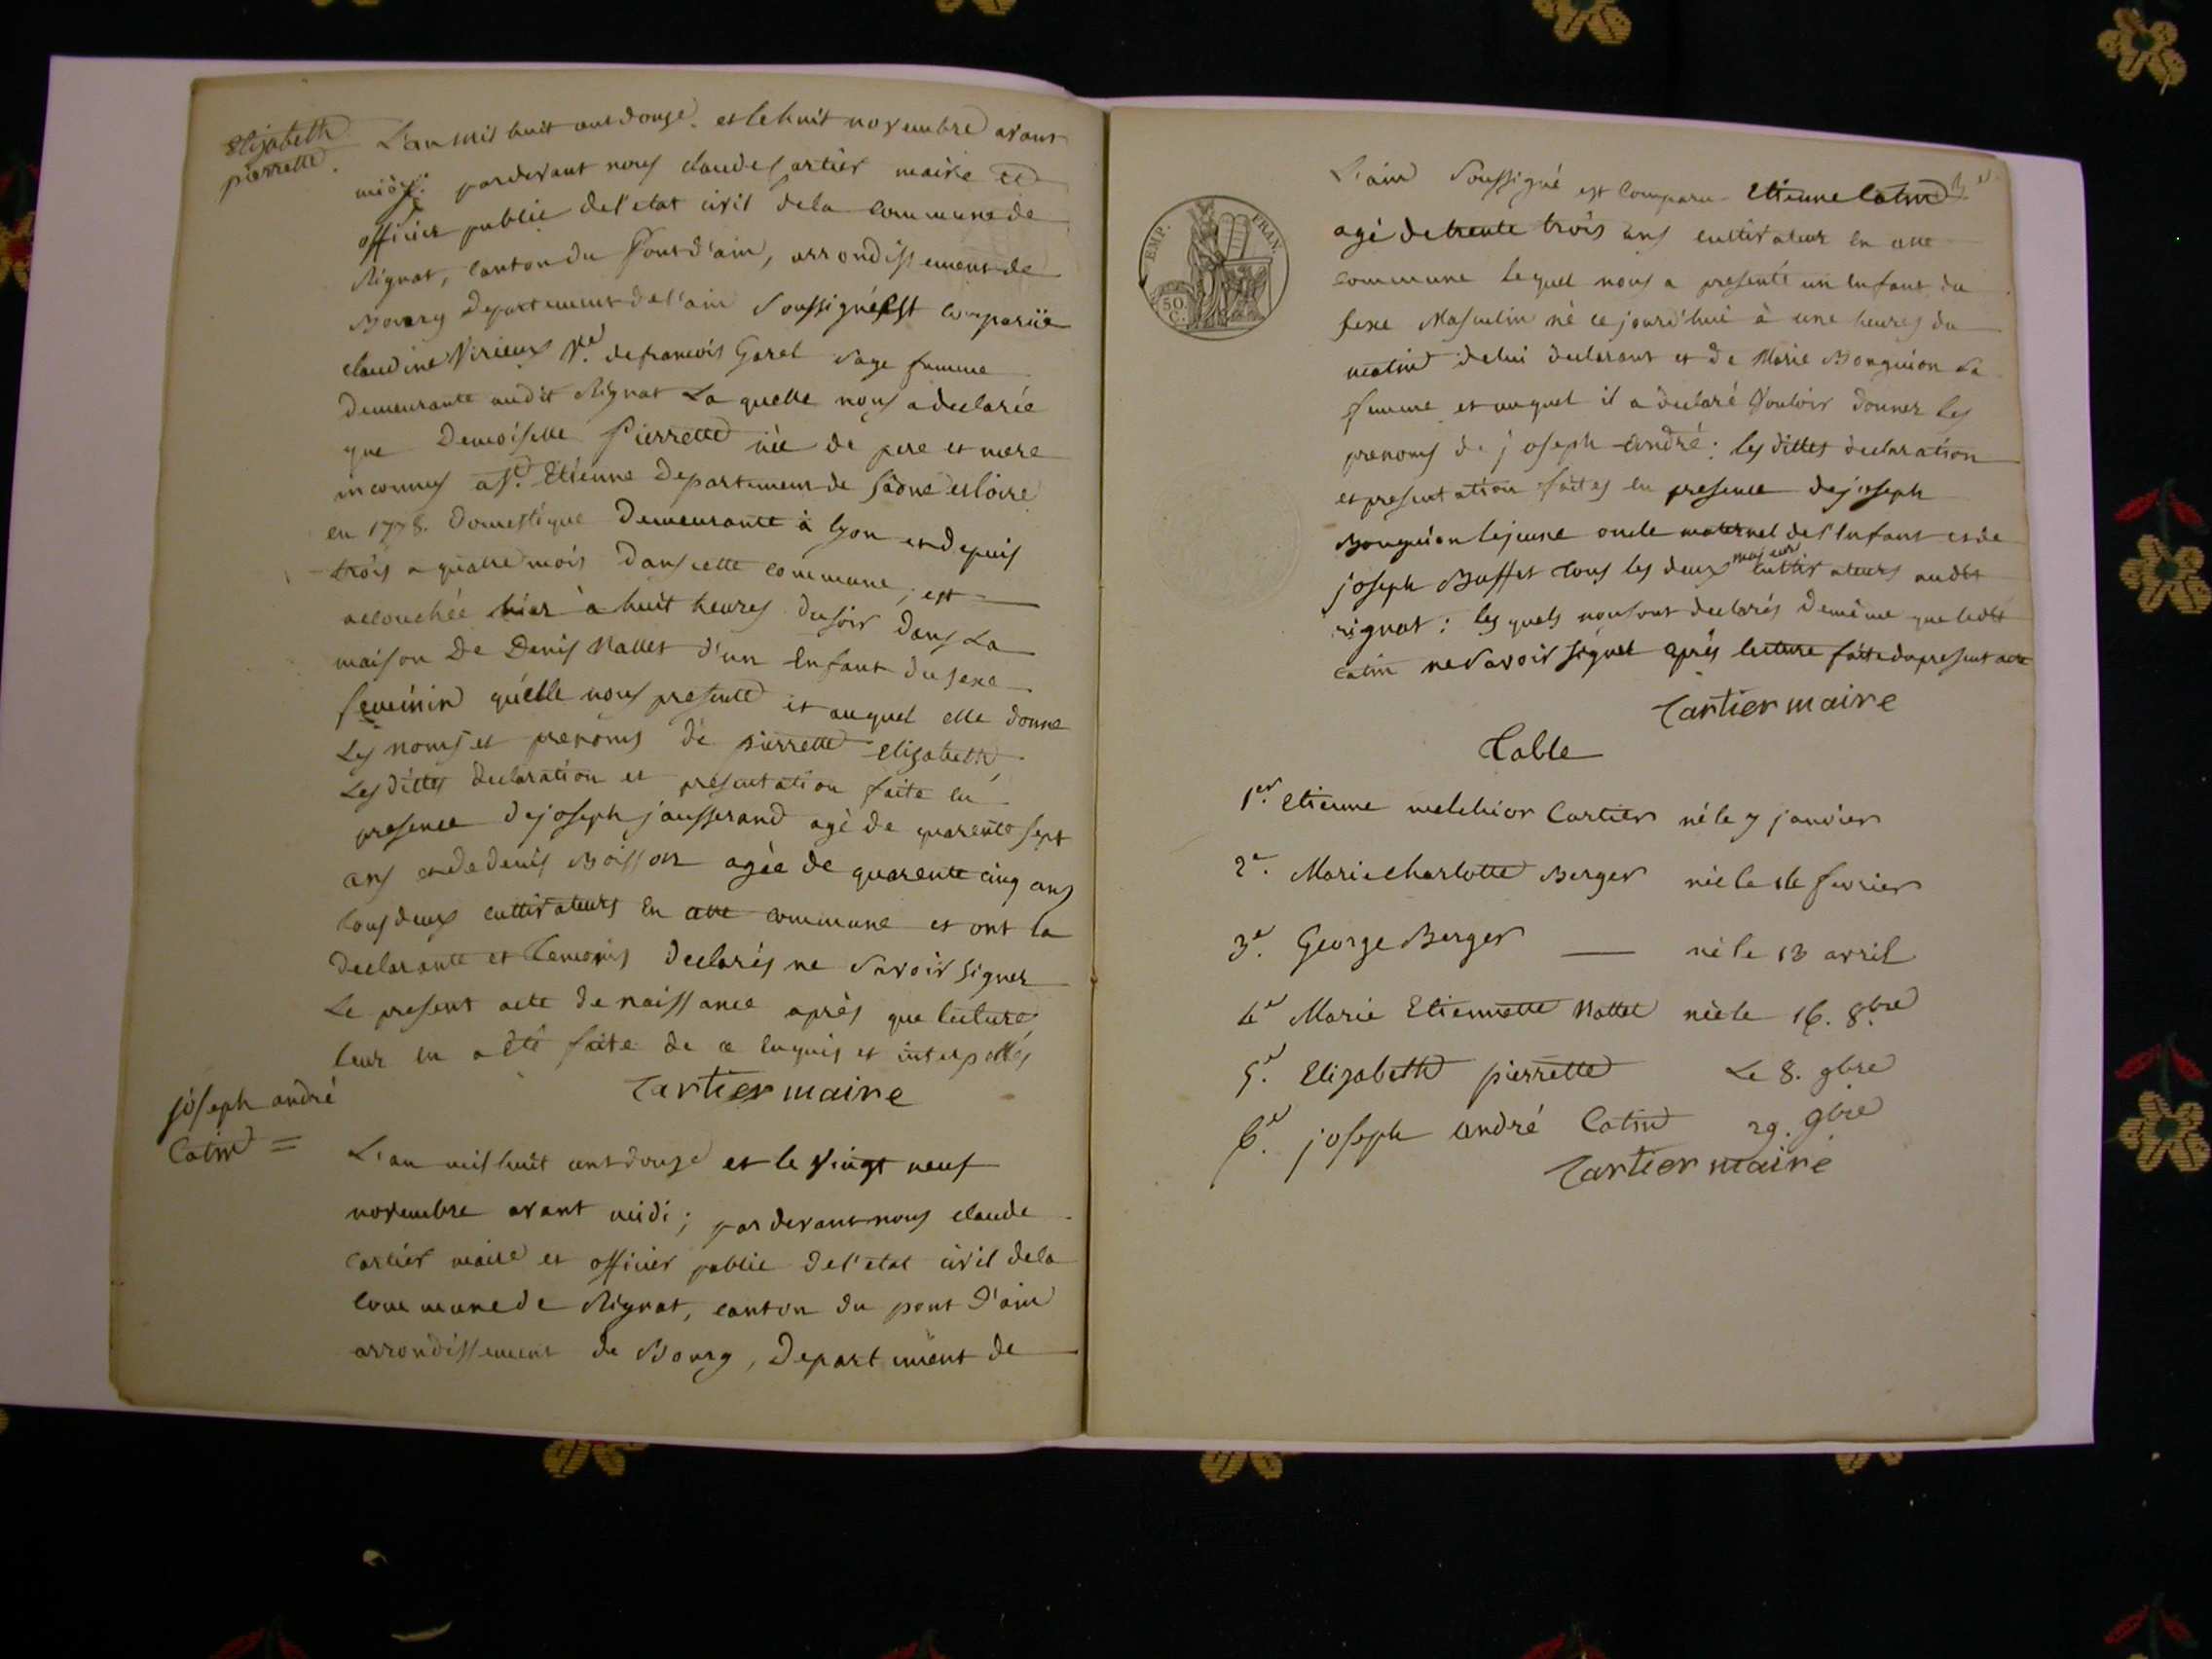 Elizabeth
pierrette.
L'an mil huit cent douze. et le huit novembre avant
midy. pardevant nous claude Cartier maire et
officier public de l'etat civil de la commune de
Rignat, canton du Pont d'ain, arrondissement de
Bourg Departement de l'ain Soussigné est comparüe
claudine Virieux Ve. de francois Garel Sage femme
demeurante audit Rignat La quelle nous a declarée
que Demoiselle Pierrette née de pere et mere
inconnus a St. Etienne Departement de saone et loire
en 1778. domestique Demeurante à lyon et depuis
trois a quatre mois dans cette commune, est
accouchée hier à huit heures du soir dans La
maison De Denis Nallet d'un Enfant du sexe
feminin qu'elle nous presente et auquel elle donne
Les noms et prenoms de pierrette Elizabeth,
Les dittes declaration et presentation faite en
presence de joseph jausserand agé de quarente sept
ans et de denis Boisson agée de quarente cinq ans
tous deux cultivateurs en cette commune et ont la
declarante et temoins declarés ne Savoir signer
Le present acte de naissance après que lecture
leur en a été faite de ce enquis et interpellés
Cartier maire
joseph andré
Catin =
L'an mil huit cent douze et le vingt neuf
novembre avant midi; pardevant nous claude
Cartier maire et officier public de l'etat civil de la
commune de Rignat, canton du pont d'ain
arrondissement de Bourg, Departement de
L'ain Soussigné est comparu Etienne Catin
EMP. FRAN.
50 C.
agé de trente trois ans cultivateur en cette
commune lequel nous a presenté un enfant du
sexe Masculin né ce jourd'hui à une heures du
matin de lui declarant et de Marie Bonguion Sa
femme et auquel il a declaré Vouloir donner les
prenoms de joseph andré: les dittes declaration
et presentation faites en presence de joseph
Bonguion le jeune oncle maternel de l'enfant et de
joseph Buffet tous les deux majeurs cultivateurs audit
rignat: les quels nous ont declarés de même que ledit
Catin ne Savoir signer après lecture faite du present acte
Cartier maire
Table
1er. Etienne melchior Cartier né le 7 janvier
2e. Marie charlotte Berger née le 16 fevrier
3e. George Berger — né le 13 avril
4e Marie Etiennette Nallet née le 16. 8bre
5e. Elizabeth pierrette Le 8. 9bre
6e. joseph andré Catin 29. 9bre
Cartier maire